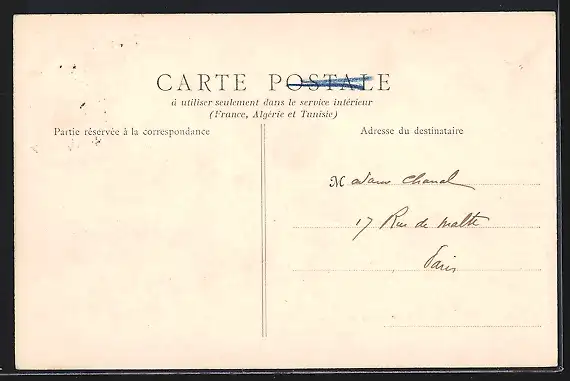 CARTE POSTALE
à utiliser seulement dans le service intérieur
(France, Algérie et Tunisie)
Partie réservée à la correspondance
Adresse du destinataire
Madame Chanal
17 Rue de Malte
Paris